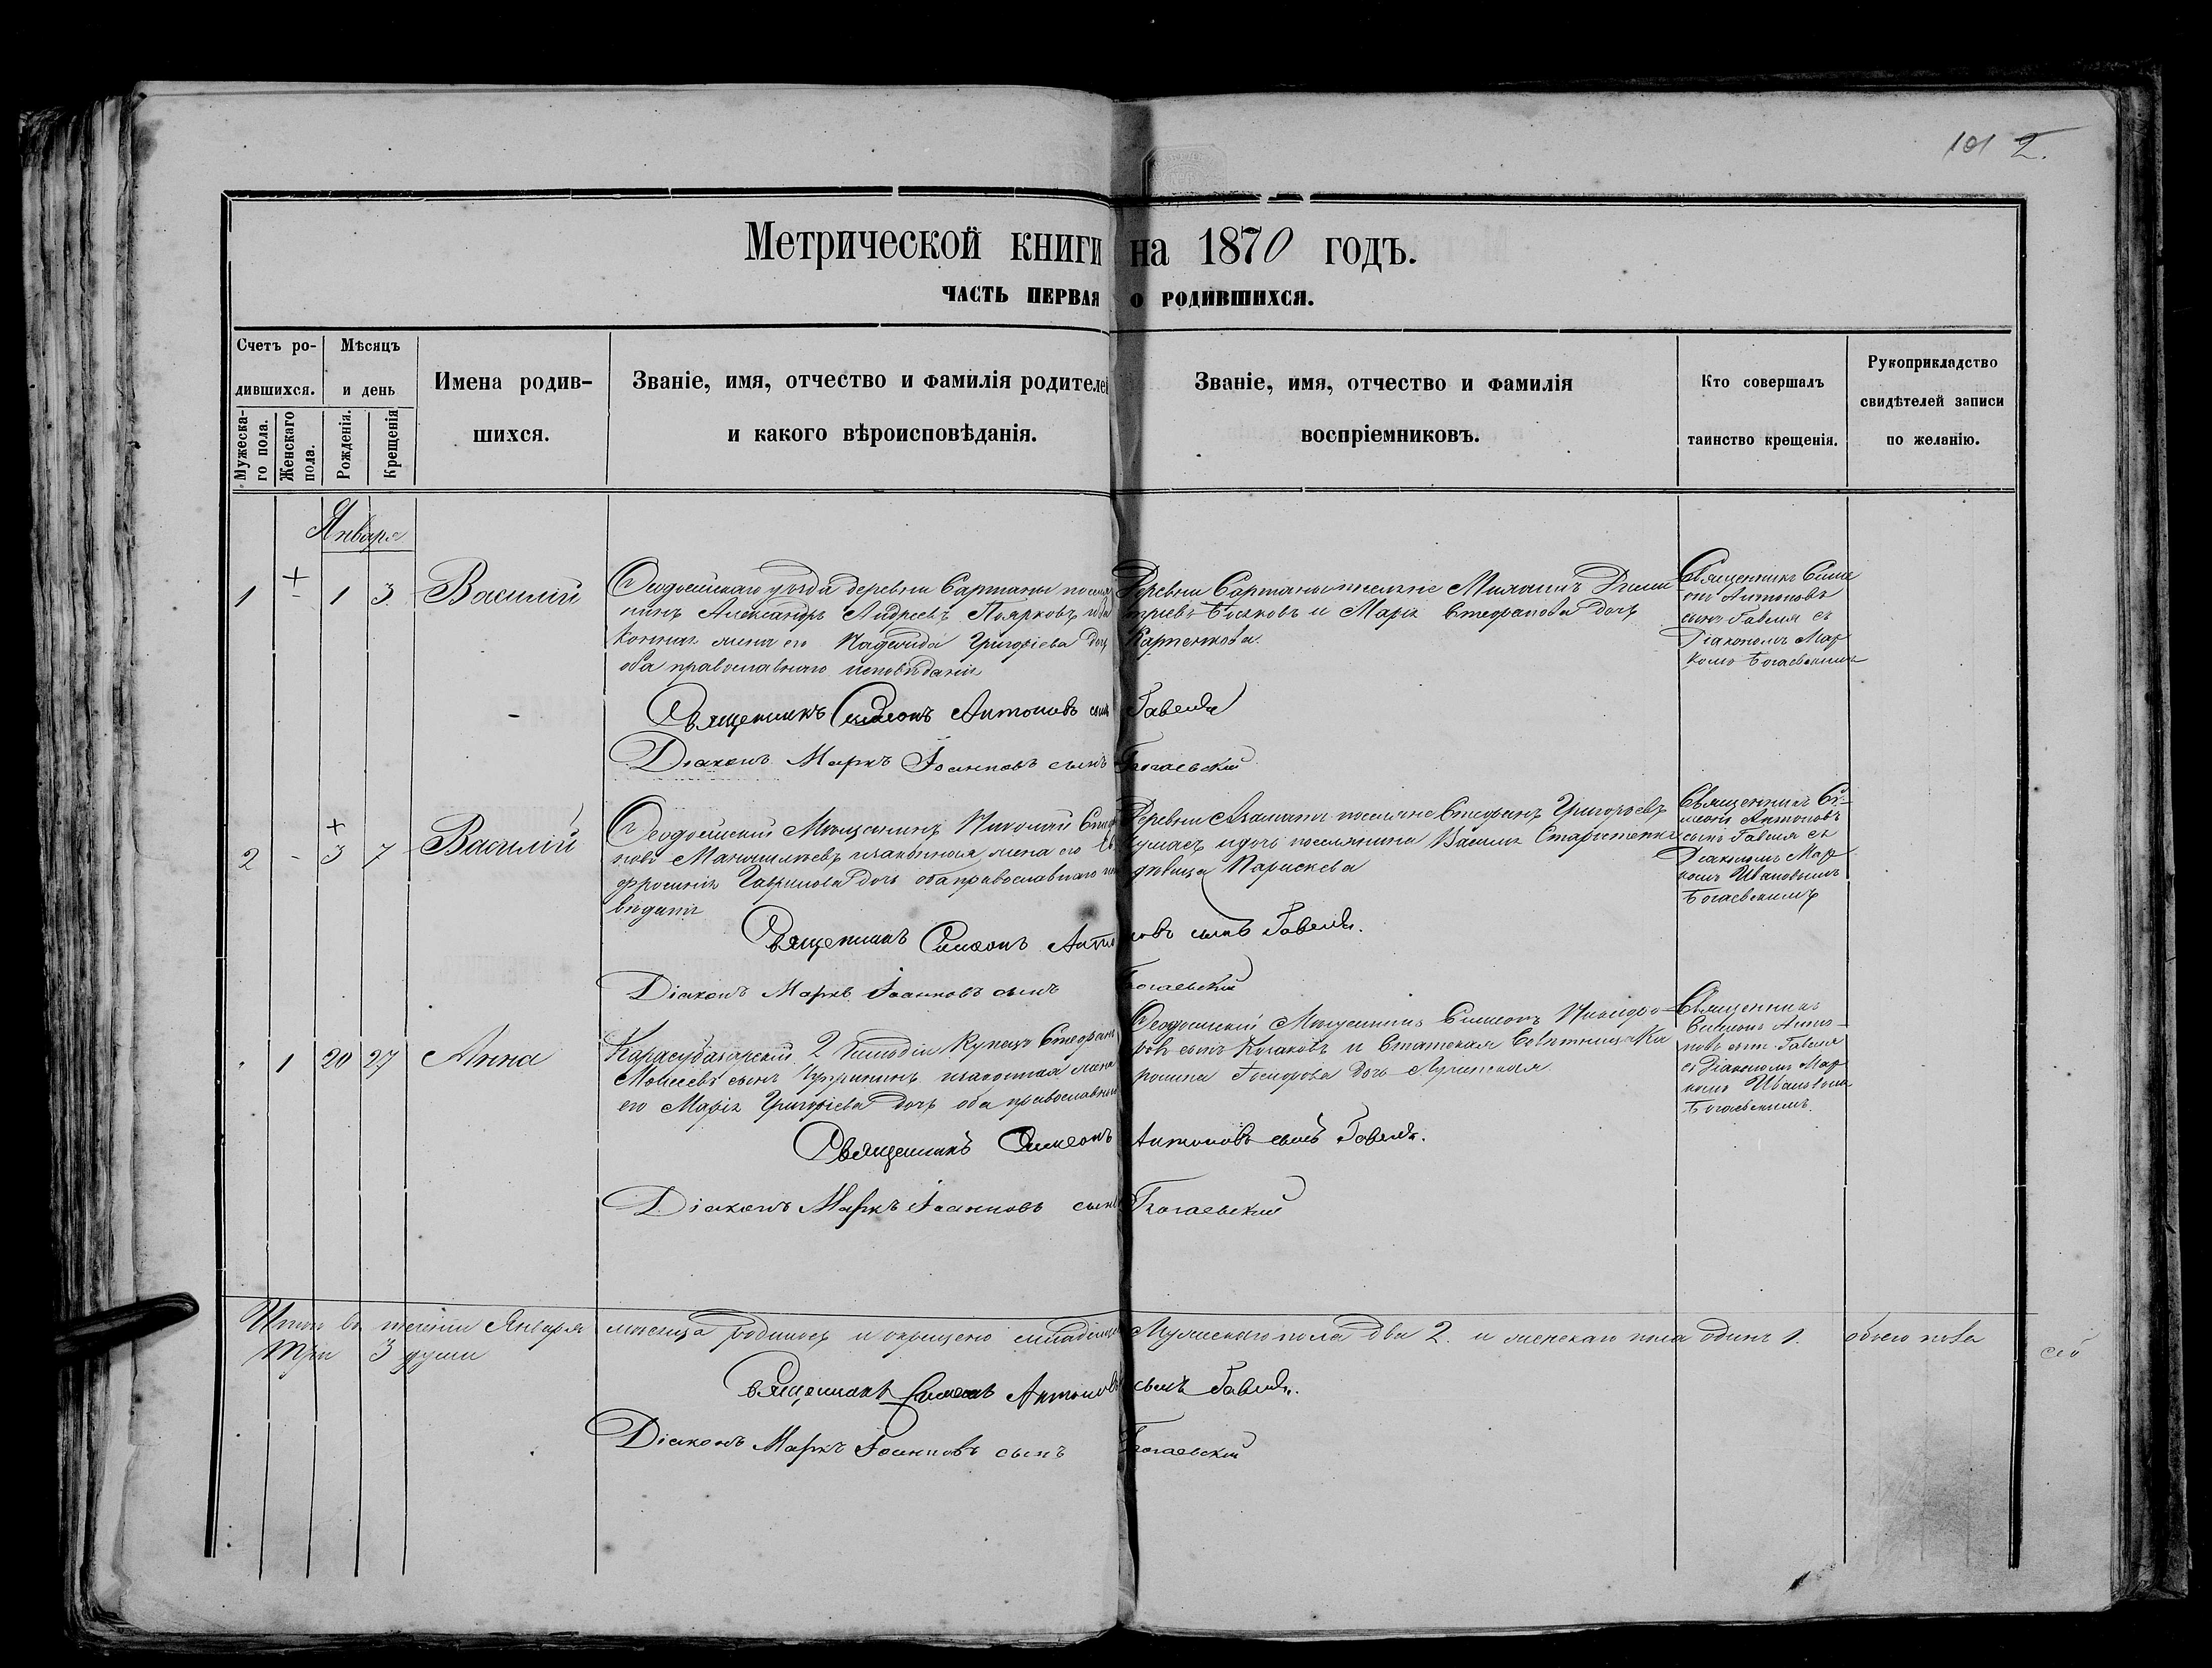 101 2.
Метрической книги на 1870 годъ.
ЧАСТЬ ПЕРВАЯ О РОДИВШИХСЯ.
Счетъ ро-
дившихся.
Мужеска-
го пола.
Женскаго
пола.
Мѣсяцъ
и день
Рожденія.
Крещенія
Имена родив-
шихся.
Званіе, имя, отчество и фамилія родителей
и какого вѣроисповѣданія.
Званіе, имя, отчество и фамилія
воспріемниковъ.
Кто совершалъ
таинство крещенія.
Рукоприкладство
свидѣтелей записи
по желанію.
Января
1 - 1 3 Василій
Ѳеодосійскаго уѣзда деревни Сартаны
Александръ Андреевъ Поярковъ
конная жена его Надежда Григоріева дочь
оба православнаго исповѣданія
Деревни Сартаны Михаилъ Дими
тріевъ и Марія Стефанова дочь
Священникъ Симе
онъ Антоновъ
сынъ Гавеля съ
Діакономъ Мар
комъ Богаевскимъ
Священникъ Симеонъ Антоновъ сынъ Гавеля
Діаконъ Маркъ Іоанновъ сынъ Богаевскій
2 - 3 7 Василій
Ѳеодосійскій Мѣщанинъ Николай
новъ изаконная жена его Ев
фросинія Гаврилова дочь оба православнаго испо
вѣданія
Деревни поселяне Стефанъ Григорьевъ
идочь поселянина Василія
дѣвица Параскева
Священникъ Си-
меонъ Антоновъ
сынъ Гавеля съ
Діакономъ Мар
комъ Ивановымъ
Богаевскимъ
Священникъ Симеонъ Антоновъ сынъ Гавеля.
Діаконъ Маркъ Іоанновъ сынъ Богаевскій
1 20 27 Анна
Карасубазарскій 2 Гильдіи Купецъ Стефанъ
Моисеевъ сынъ изаконная жена
его Марія Григоріева дочь оба православнаго
Ѳеодосійскій Мѣщанинъ Симеонъ Никифо-
ровъ сынъ Казаковъ и Статская Совѣтница Ка
ролина дочь
Священникъ
Симеонъ Анто-
новъ сынъ Гавеля
съ Діакономъ Мар
комъ Ивановымъ
Богаевскимъ.
Священникъ Симеонъ Антоновъ сынъ Гавеля.
Діаконъ Маркъ Іоанновъ сынъ Богаевскій
Итого въ теченіи Января мѣсяца родилось и окрещено младенцевъ Мужескаго пола два 2. и женскаго пола одинъ 1. обоего пола
три 3 души
Священникъ Симеонъ Антоновъ сынъ Гавеля.
Діаконъ Маркъ Іоанновъ сынъ Богаевскій